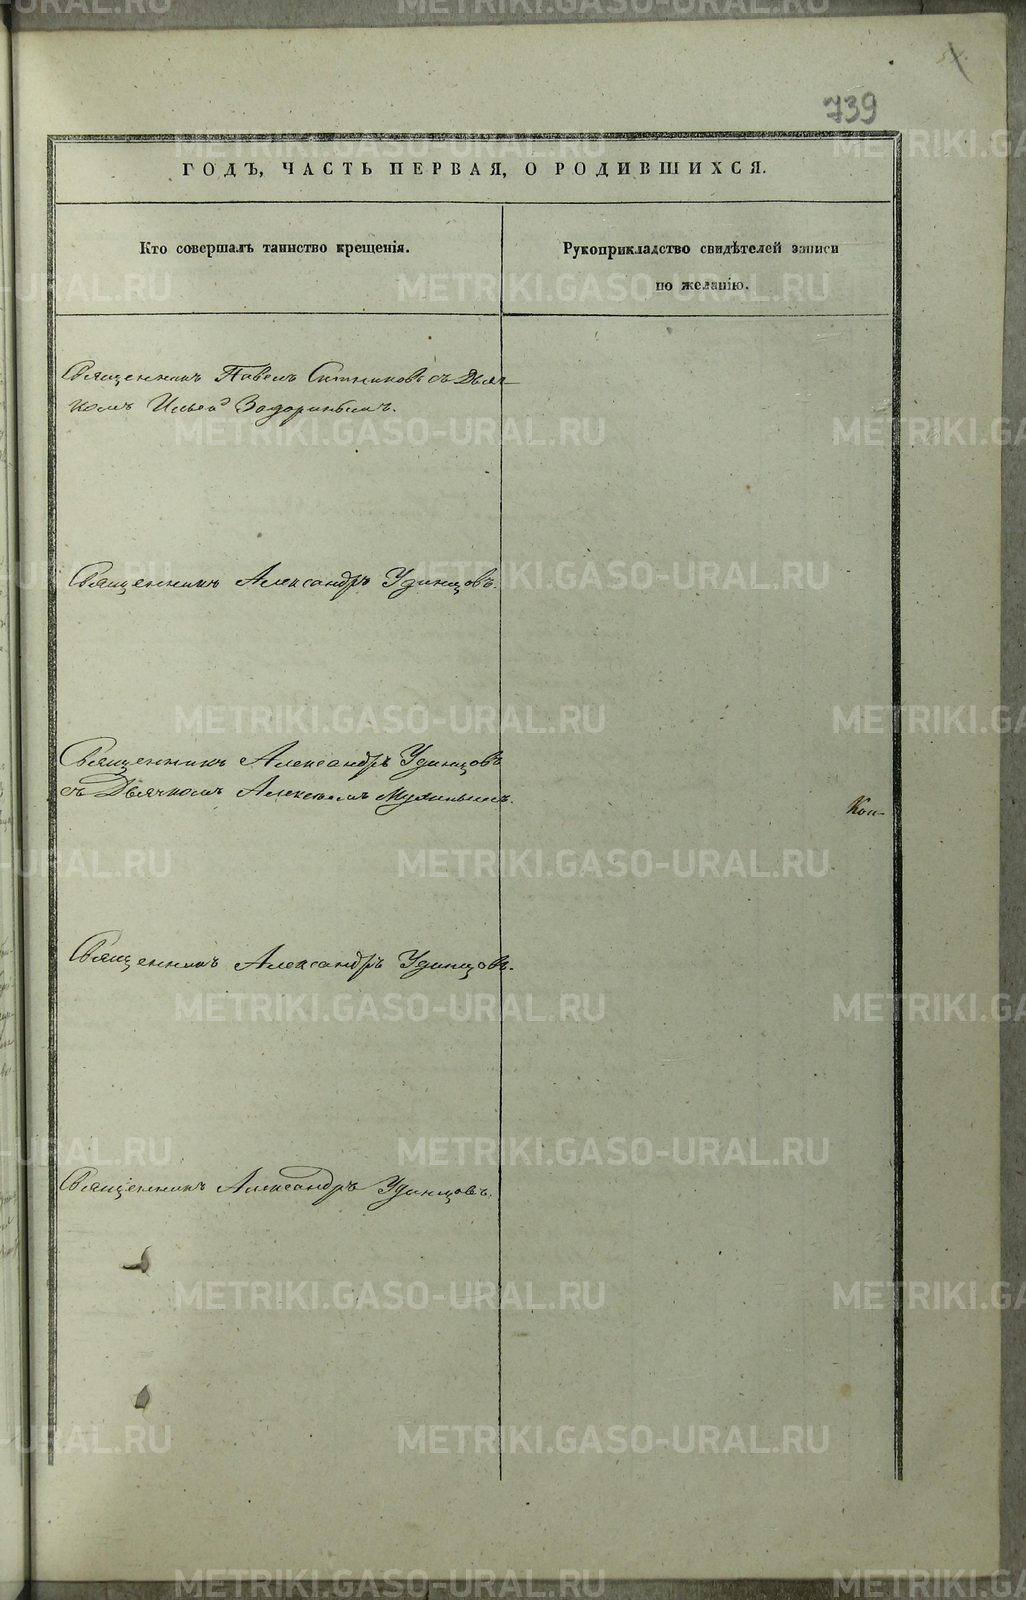 739
ГОДЪ, ЧАСТЬ ПЕРВАЯ, О РОДИВШИХСЯ.
Кто совершалъ таинство крещенія.
Рукоприкладство свидѣтелей записи
по желанію.
Священникъ Павелъ Ситниковъ съ Дьяч-
комъ Ильею Задоринымъ.
Священникъ Александръ Удинцовъ.
Священникъ Александръ Удинцовъ
съ Дьячкомъ Алексѣемъ Мухинымъ.
Кон-
Священникъ Александръ Удинцовъ.
Священникъ Александръ Удинцовъ.
METRIKI.GASO-URAL.RU